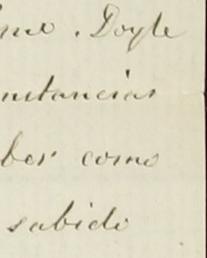 mo. Doyle
nstancias
ber como
sabido